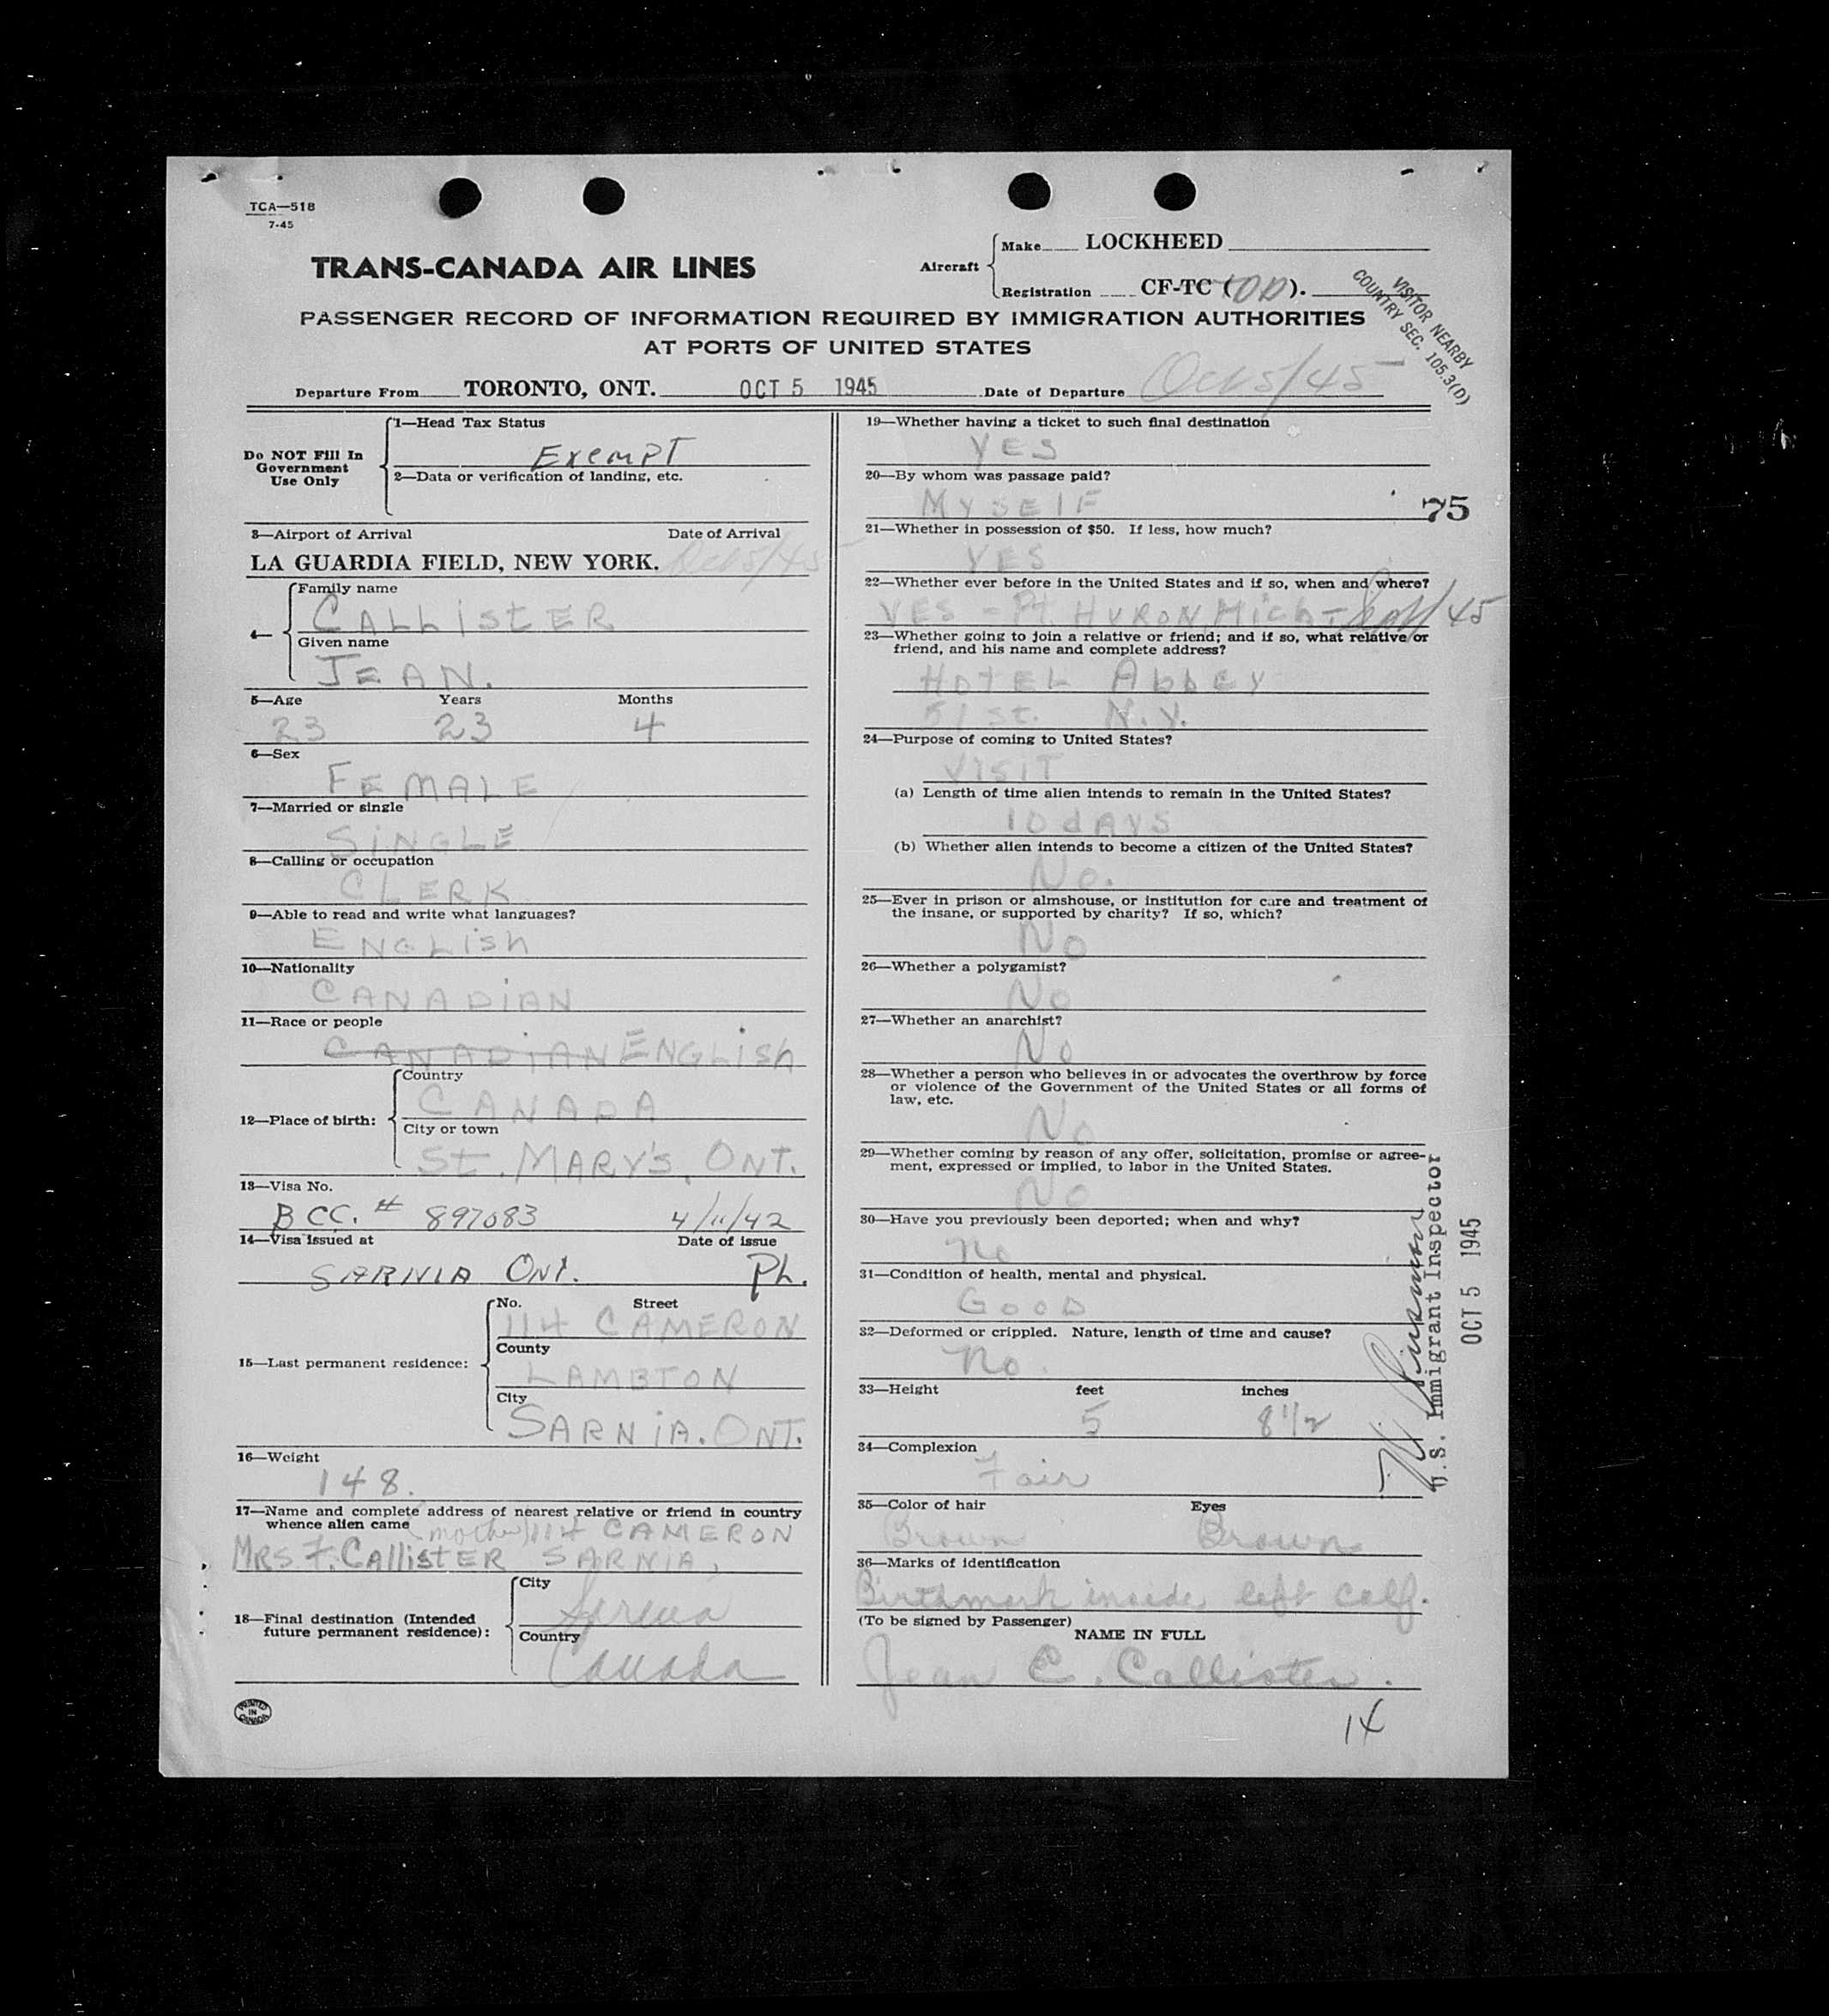 TCA—518
7-45
TRANS-CANADA AIR LINES
Aircraft
Make LOCKHEED
Registration CF-TC ( ).
VISITOR NEARBY
COUNTRY SEC. 105.3(D)
PASSENGER RECORD OF INFORMATION REQUIRED BY IMMIGRATION AUTHORITIES
AT PORTS OF UNITED STATES
Departure From TORONTO, ONT. OCT 5 1945 Date of Departure Oct 5/45
Do NOT Fill In
Government
Use Only
1—Head Tax Status
Exempt
2—Data or verification of landing, etc.
3—Airport of Arrival Date of Arrival
LA GUARDIA FIELD, NEW YORK. Oct 5/45
4—
Family name
CALLISTER
Given name
JEAN.
5—Age Years Months
23 23 4
6—Sex
FEMALE
7—Married or single
SINGLE
8—Calling or occupation
CLERK
9—Able to read and write what languages?
ENGLISH
10—Nationality
CANADIAN
11—Race or people
CANADIAN ENGLISH
12—Place of birth:
Country
CANADA
City or town
ST. MARY'S, ONT.
13—Visa No.
BCC. # 897083 4/11/42
14—Visa issued at Date of issue
SARNIA ONT. Ph.
15—Last permanent residence:
No. Street
114 CAMERON
County
LAMBTON
City
SARNIA. ONT.
16—Weight
148.
17—Name and complete address of nearest relative or friend in country
whence alien came (mother) 114 CAMERON
MRS F. CALLISTER SARNIA,
18—Final destination (Intended
future permanent residence):
City
Country
Canada
PRINTED
IN
CANADA
19—Whether having a ticket to such final destination
YES
20—By whom was passage paid?
MYSELF
75
21—Whether in possession of $50. If less, how much?
YES
22—Whether ever before in the United States and if so, when and where?
YES - Pt. HURON, Mich - Sept/45
23—Whether going to join a relative or friend; and if so, what relative or
friend, and his name and complete address?
HOTEL Abbey
51 St. N.Y.
24—Purpose of coming to United States?
VISIT
(a) Length of time alien intends to remain in the United States?
10 dAYS
(b) Whether alien intends to become a citizen of the United States?
No.
25—Ever in prison or almshouse, or institution for care and treatment of
the insane, or supported by charity? If so, which?
No
26—Whether a polygamist?
No
27—Whether an anarchist?
No
28—Whether a person who believes in or advocates the overthrow by force
or violence of the Government of the United States or all forms of
law, etc.
No
29—Whether coming by reason of any offer, solicitation, promise or agree-
ment, expressed or implied, to labor in the United States.
No
30—Have you previously been deported; when and why?
no
31—Condition of health, mental and physical.
GOOD
32—Deformed or crippled. Nature, length of time and cause?
no.
33—Height feet inches
5 8 1/2
34—Complexion
Fair
35—Color of hair Eyes
Brown Brown
36—Marks of identification
Birthmark inside left calf.
(To be signed by Passenger)
NAME IN FULL
Jean C. Callister.
14
U.S. Immigrant Inspector
OCT 5 1945